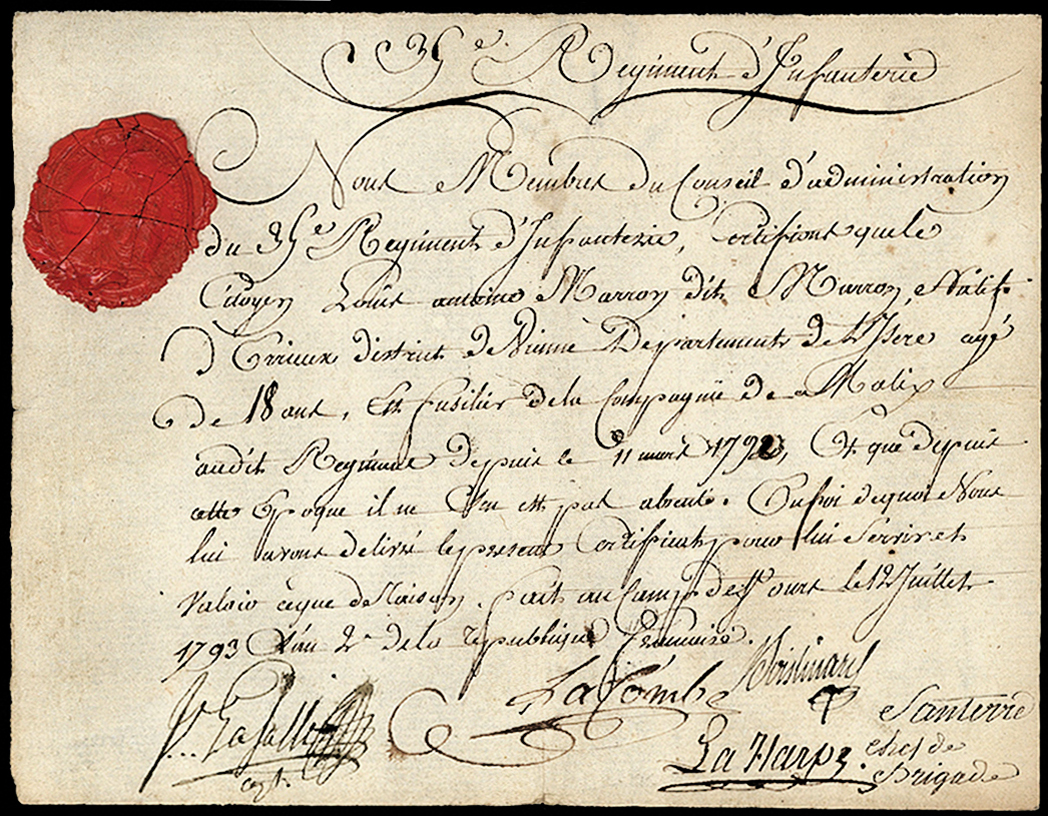 35e. Regiment d'Infanterie
Nous Membres du Conseil d'administration
du 35e Regiment d'Infanterie, Certifions que le
Citoyen Louis antoine Marron dit Marron, Natif
D'Errieux district de Vienne Departement de L'Isere agé
de 18 ans, Est fusilier de la Compagnie de Malix
audit Regiment depuis le 11 mars 1792, Et que depuis
cette Epoque il ne s'en est pas absenté. En foi de quoi Nous
lui avons delivré le present Certificat pour lui Servir et
Valoir ce que de Raison. fait au Camp de 12 Juillet
1793 L'an 2e de la republique francaise.
LaCombe
Lasalle
capt.
La Harpe
Santerre
chef de
Brigade